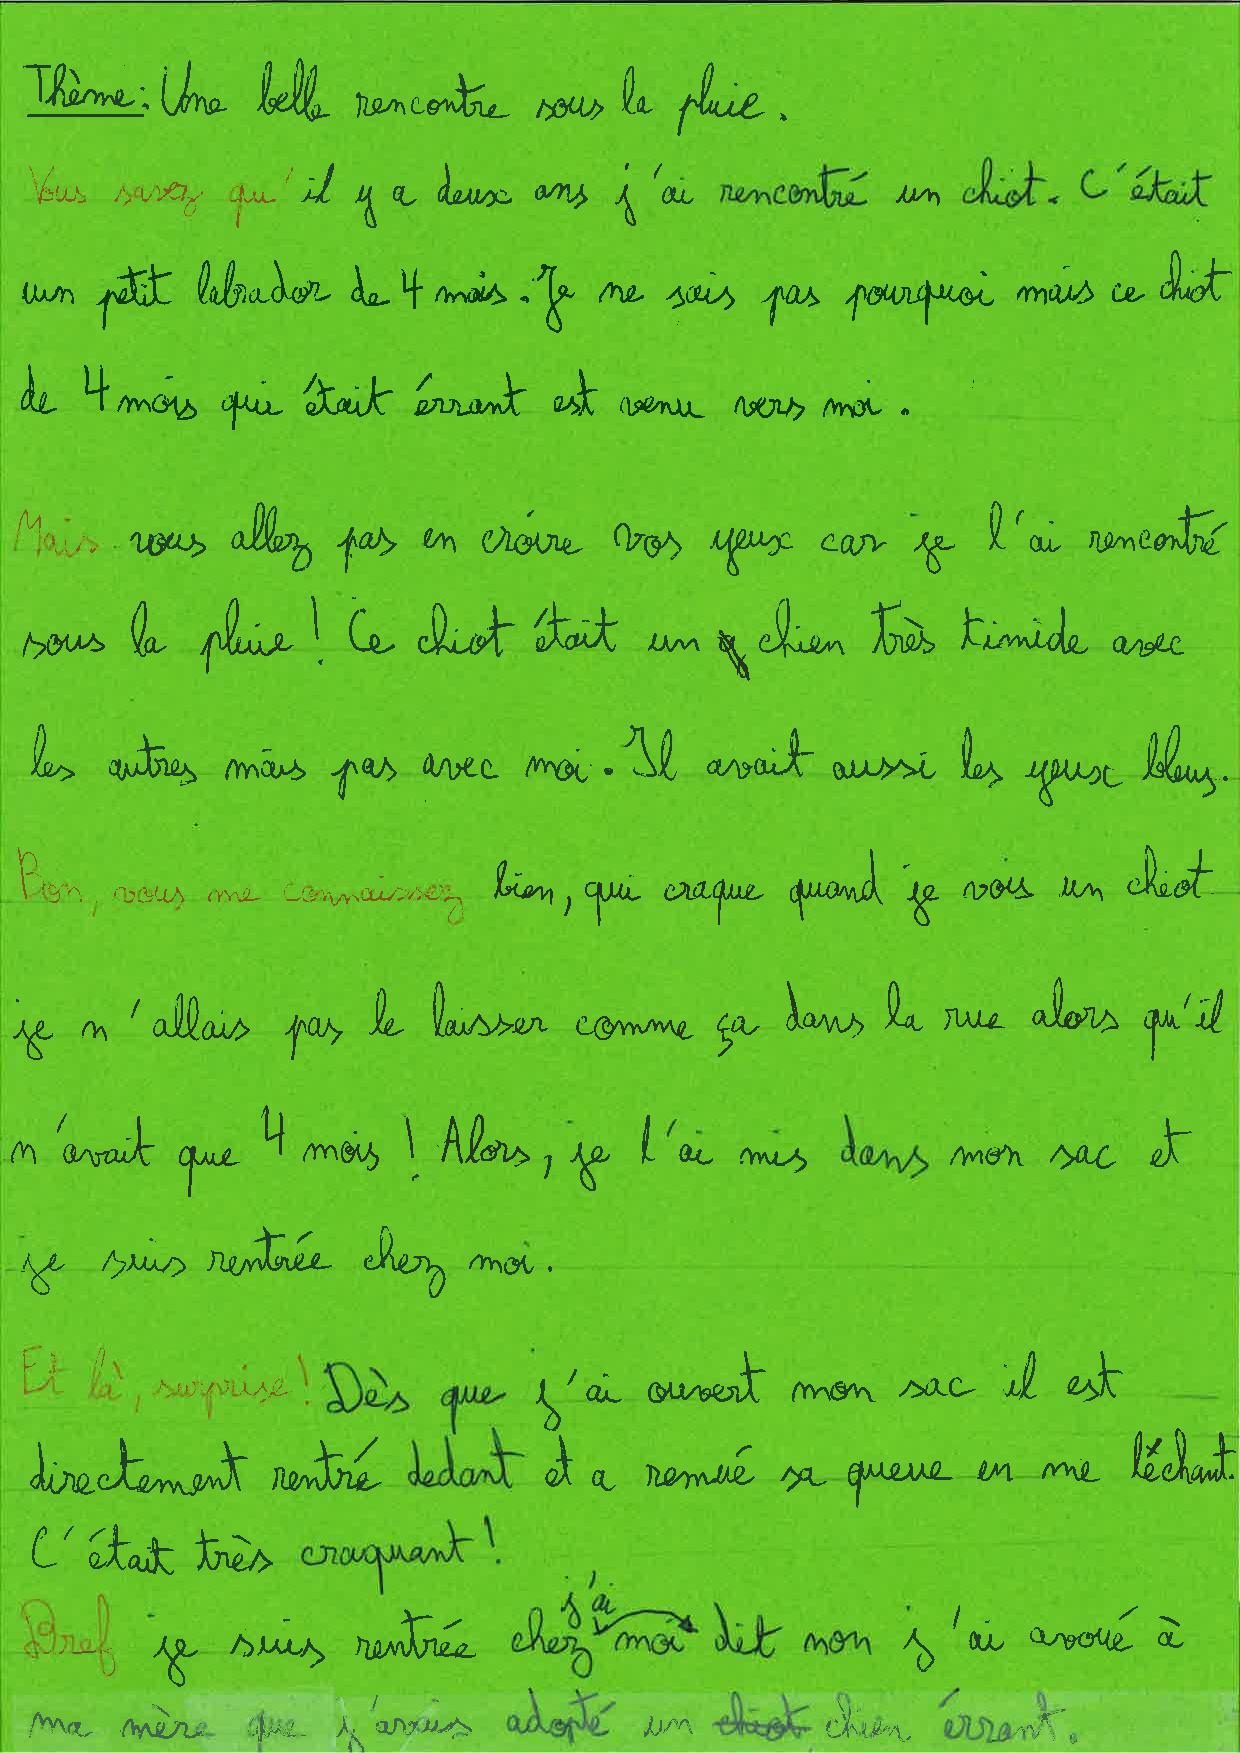 Thème: Une belle rencontre sous la pluie.
Vous savez qu'il y a deux ans j'ai rencontré un chiot. C'était
un petit labrador de 4 mois. Je ne sais pas pourquoi mais ce chiot
de 4 mois qui était érrant est venu vers moi.
Mais vous allez pas en croire vos yeux car je l'ai rencontré
sous la pluie! Ce chiot était un chien très timide avec
les autres mais pas avec moi. Il avait aussi les yeux bleus.
Bon, vous me connaissez bien, qui craque quand je vois un chiot
je n'allais pas le laisser comme ça dans la rue alors qu'il
n'avait que 4 mois! Alors, je l'ai mis dans mon sac et
je suis rentrée chez moi.
Et là, surprise! Dès que j'ai ouvert mon sac il est
directement rentré dedant et a remué sa queue en me lêchant.
C'était très craquant!
j'ai
Bref je suis rentrée chez moi dit non j'ai avoué à
ma mère que j'avais adopté un chiot chien érrant.